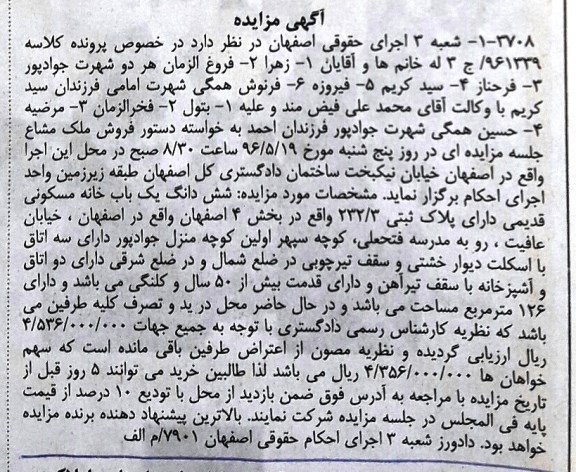 آگهی مزایده
۱-۳۷۰۸- شعبه ۳ اجرای حقوقی اصفهان در نظر دارد در خصوص پرونده کلاسه
۹۶۱۳۳۹/ ج ۳ له خانم ها و آقایان ۱- زهرا ۲- فروغ الزمان هر دو شهرت جوادپور
۳- فرحناز ۴- سید کریم ۵- فیروزه ۶- فرنوش همگی شهرت امامی فرزندان سید
کریم با وکالت آقای محمد علی فیض مند و علیه ۱- بتول ۲- فخرالزمان ۳- مرضیه
۴- حسین همگی شهرت جوادپور فرزندان احمد به خواسته دستور فروش ملک مشاع
جلسه مزایده ای در روز پنج شنبه مورخ ۹۶/۵/۱۹ ساعت ۸/۳۰ صبح در محل این اجرا
واقع در اصفهان خیابان نیکبخت ساختمان دادگستری کل اصفهان طبقه زیرزمین واحد
اجرای احکام برگزار نماید. مشخصات مورد مزایده: شش دانگ یک باب خانه مسکونی
قدیمی دارای پلاک ثبتی ۲۳۲/۳ واقع در بخش ۴ اصفهان واقع در اصفهان ، خیابان
عافیت ، رو به مدرسه فتحعلی، کوچه سپهر اولین کوچه منزل جوادپور دارای سه اتاق
با اسکلت دیوار خشتی و سقف تیرچوبی در ضلع شمال و در ضلع شرقی دارای دو اتاق
و آشپزخانه با سقف تیرآهن و دارای قدمت بیش از ۵۰ سال و کلنگی می باشد و دارای
۱۲۶ مترمربع مساحت می باشد و در حال حاضر محل در ید و تصرف کلیه طرفین می
باشد که نظریه کارشناس رسمی دادگستری با توجه به جمیع جهات ۴/۵۳۶/۰۰۰/۰۰۰
ریال ارزیابی گردیده و نظریه مصون از اعتراض طرفین باقی مانده است که سهم
خواهان ها ۴/۳۵۶/۰۰۰/۰۰۰ ریال می باشد لذا طالبین خرید می توانند ۵ روز قبل از
تاریخ مزایده با مراجعه به آدرس فوق ضمن بازدید از محل با تودیع ۱۰ درصد از قیمت
پایه فی المجلس در جلسه مزایده شرکت نمایند. بالاترین پیشنهاد دهنده برنده مزایده
خواهد بود. دادورز شعبه ۳ اجرای احکام حقوقی اصفهان ۷۹۰۱/م الف